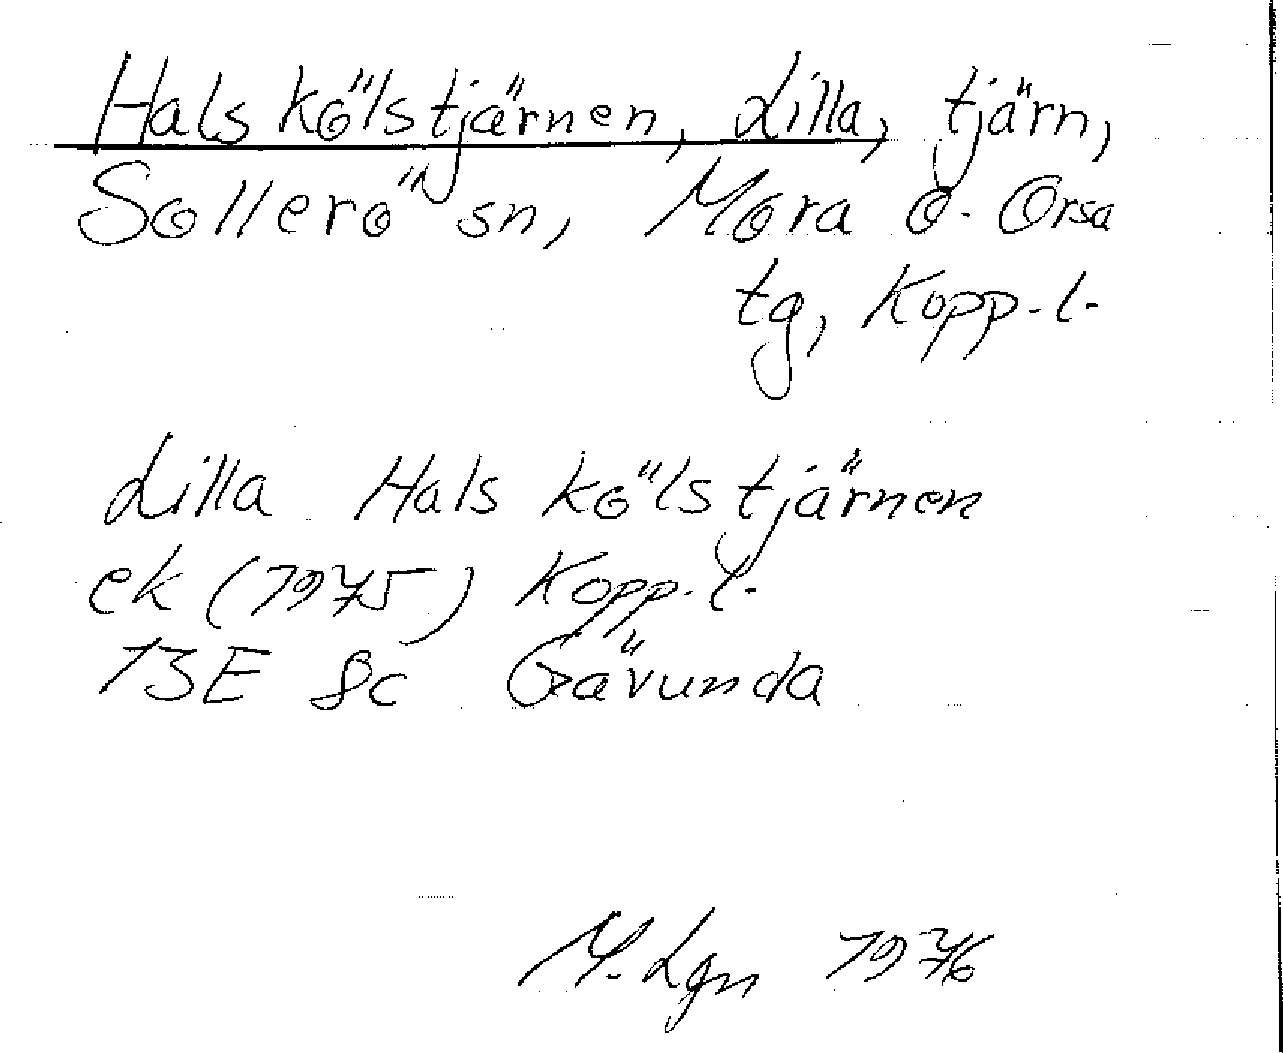 Halskölstjärnen, Lilla, tjärn,
Sollerö sn, Mora o. Orsa
tg, Kopp.l.
Lilla Halskölstjärnen
ek (1975) Kopp.l.
13E 8c Gävunda
M. Lgn 1976